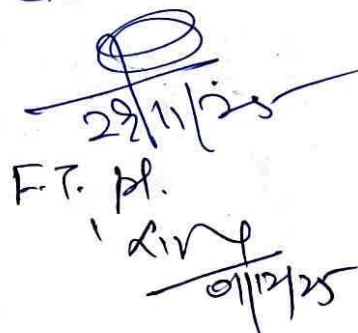 29/11/25
F.T. pl.
01/12/25